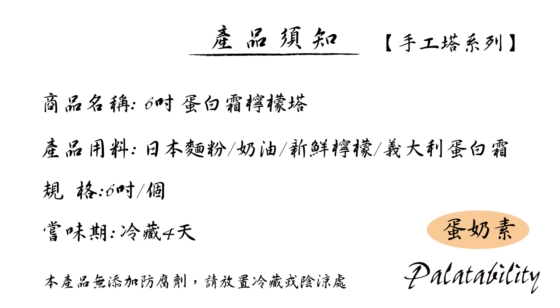 產品須知 【手工塔系列】
商品名稱: 6吋 蛋白霜檸檬塔
產品用料: 日本麵粉/奶油/新鮮檸檬/義大利蛋白霜
規 格:6吋/個
賞味期:冷藏4天
蛋奶素
本產品無添加防腐劑，請放置冷藏或陰涼處
Palatability